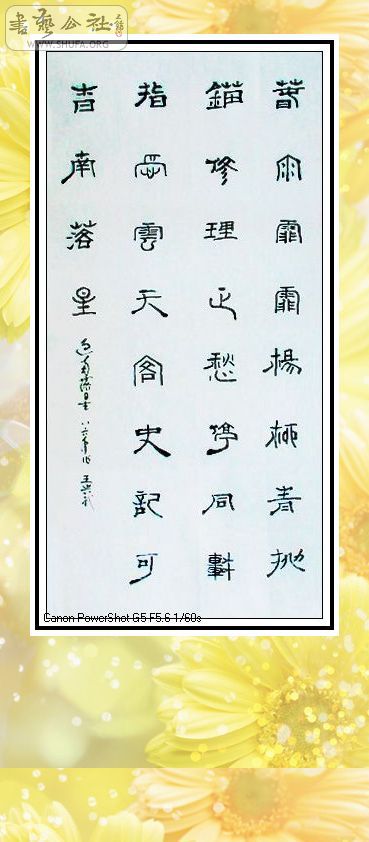 書藝公社
WWW.SHUFA.ORG
春雨霏霏楊柳青拋
錨修理正愁停同
指雲天客史記可
南落星
南落星 八六年作
Canon PowerShot G5 F5.6 1/60s